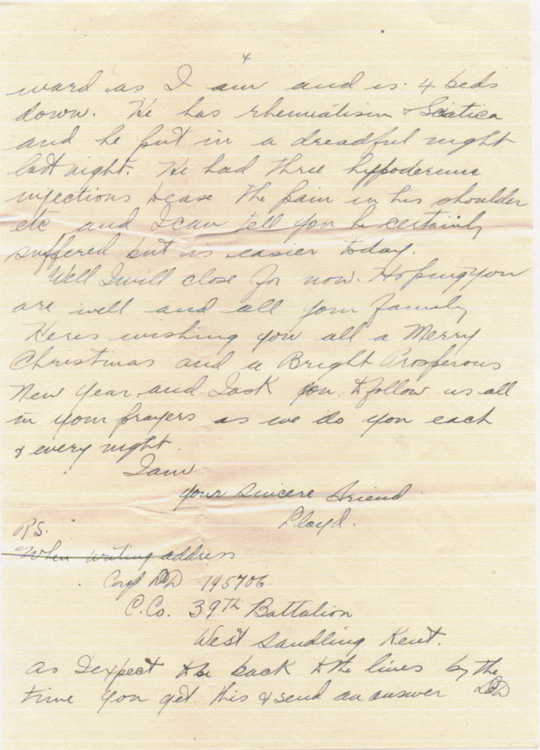 4
ward as I am and is 4 beds
down. He has rheumatism & Sciatica
and he put in a dreadful night
last night. He had three hypodermic
injections to ease the pain in his shoulder
etc and I can tell you he certainly
suffered but is easier today.
Well I will close for now. Hoping you
are well and all your family
Heres wishing you all a Merry
Christmas and a Bright Prosperous
New Year and I ask you to follow us all
in your prayers as we do you each
& every night.
I am
your sincere friend
Lloyd.
P.S.
When writing address
Corpl 195706
C. Co. 39th Battalion
West Sandling Kent.
as I expect to be back to the lines by the
time you get this & send an answer